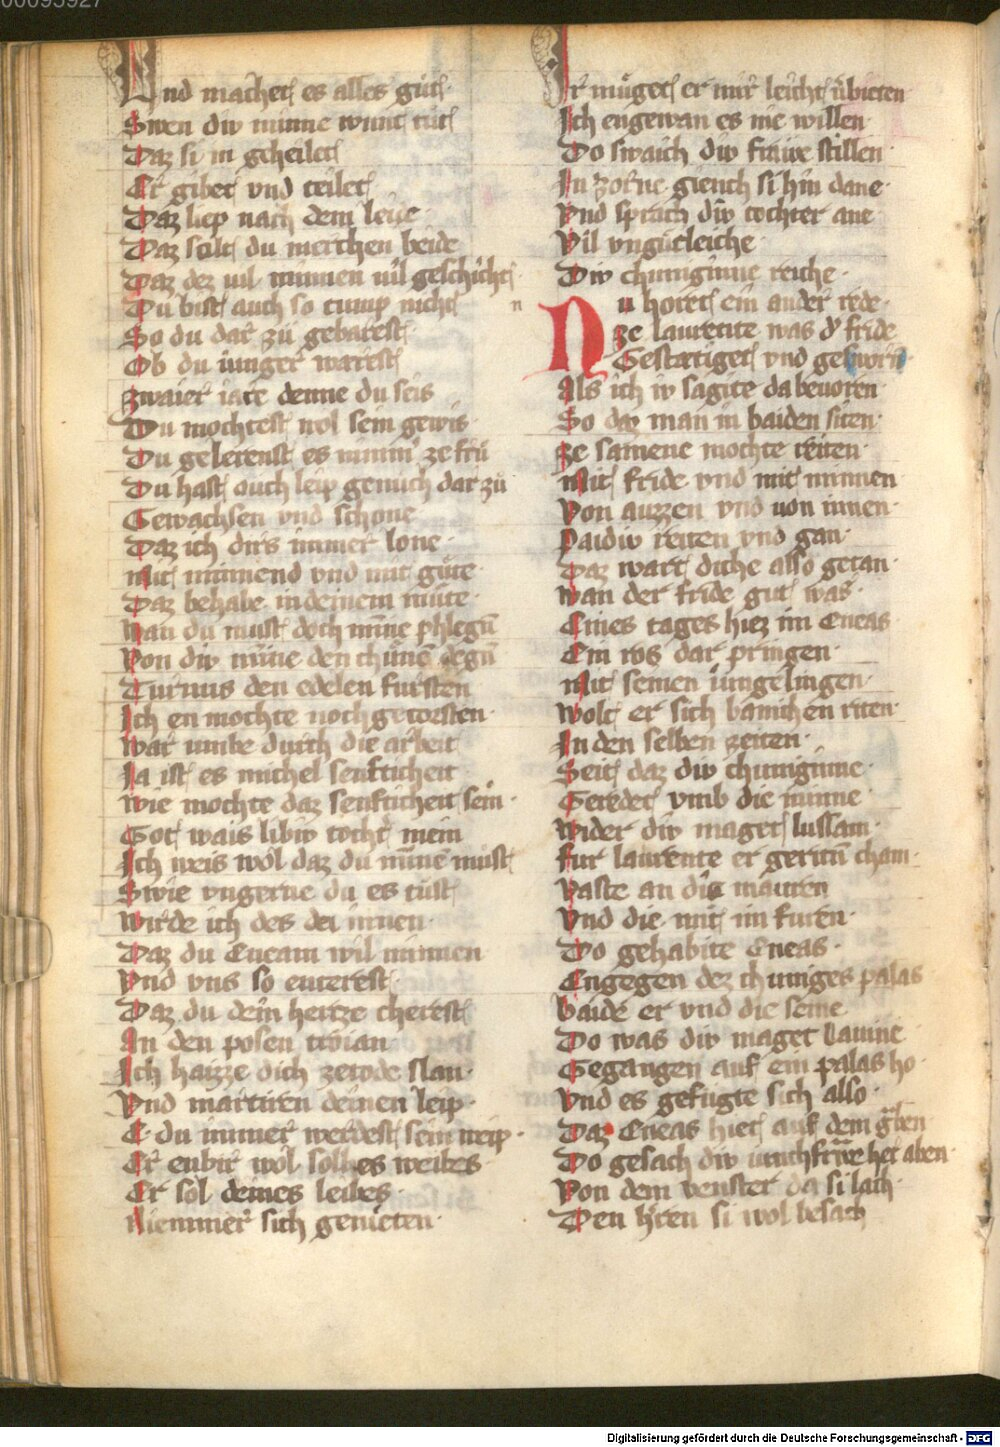 Vnd machet es alles gůt
Swen div minne wunt tůt
Daz si in geheilet
Er gibet vnd teilet
Daz liep nach dem leide
Daz solt du merchen beide
Daz dez vil minnen vil geschicht
Du bist auch so tump nicht
So du dar zu gebarest
Ob du iunger warest
zwaier iare denne du seis
Du mochtest wol sein gewis
Du gelerenst es nimmer ze frů
Du hast auch leip genuch dar zů
Gewachsen vnd schone
Daz ich dirs immer lone
Mit minnend vnd mit gůte
Daz behabe in deinem můte
Wan du must doch mīne phlegen
Von div mīne den chůnē degen
Turnus den edelen fursten
Ich en mochte noch getorsten
War umbe durch die arbeit
Ja ist es michel senfticheit
Wie mochte daz senfticheit sein
Got wais libiv tocht mein
Ich weis wol daz du mīne must
Swie vngerne du es tůst
Wirde ich des dei innen
Daz du Eneam wil minnen
Vnd vns so enterest
Daz du dein hertze cherest
An den posen troian
Ich haizze dich zetode slan
Vnd martiren deinen leip
E du immer werdest sein weip
Er enbir wol solhes weibes
Er sol deines leibes
Niemmer sich genieten
Ir můget er mir leicht vbieten
Ich engewan es nie willen
Do swaich div frawe stillen
In zorne giench si hin dane
Vnd sprach div tochter ane
Vil vngůtleiche
Div chuniginne reiche
n
Nu horet ein ander rede
ze laurente was d' fride
Gestatiget vnd gesworn
Als ich iv sagite da beuoren
So daz man in baiden siten
ze samene mochte reiten
Mit fride vnd mit minnen
Von auzzen vnd von innen
Paidiv reiten vnd gan
Daz wart diche also getan
Wan der fride gut was
Eines tages hiez im Eneas
Ein ros dar pringen
Mit seinen iungelingen
Wolt er sich banichen riten
In den selben zeiten
Seit daz div chuniginne
Geredet vmb die minne
Wider div maget lussam
Fur laurente er geritū cham
Vaste an die mauren
Vnd die mit im furen
Do gehabite Eneas
Engegen dez chuniges palas
Baide er vnd die seine
Do was div maget Lauine
Gegangen auf ein palas ho
Vnd es gefugte sich also
Daz Eneas hielt auf dem graben
Do gesach div iunchfrawe her aben
Von dem venster da si lach
Den h'ren si wol besach
Digitalisierung gefördert durch die Deutsche Forschungsgemeinschaft - DFG